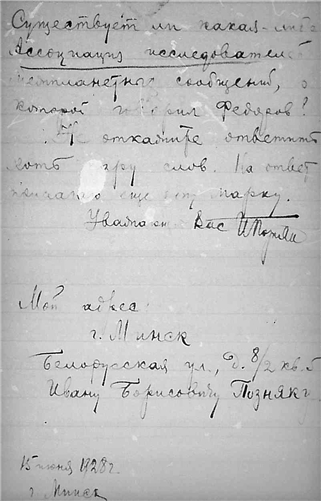 Существует ли какая-либо
Ассоциация исследователей
межпланетных сообщений, о
которой говорил Федоров?
Не откажите ответить
хоть пару слов. На ответ
прилагаю еще одну марку.
Уважающ Вас И Позняк
Мой адрес:
г. Минск
Белорусская ул., д. 8/2 кв. 5
Ивану Борисовичу Позняку
15 июня 1928 г.
г. Минск